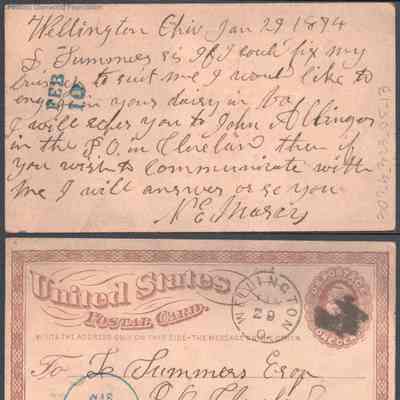 Wellington Ohio Jan 29 1874
L. Summers Esq If I could fix my
business to suit me I would like to
engage in your dairy in Va
I will refer you to John A Ellinger
in the P.O. in Cleveland then if
you wish to communicate with
me I will answer or see you
N E
FEB
10
United States
POSTAL CARD.
WRITE THE ADDRESS ONLY ON THIS SIDE-THE MESSAGE ON THE OTHER
WELLINGTON
29
O.
To L Summers Esq